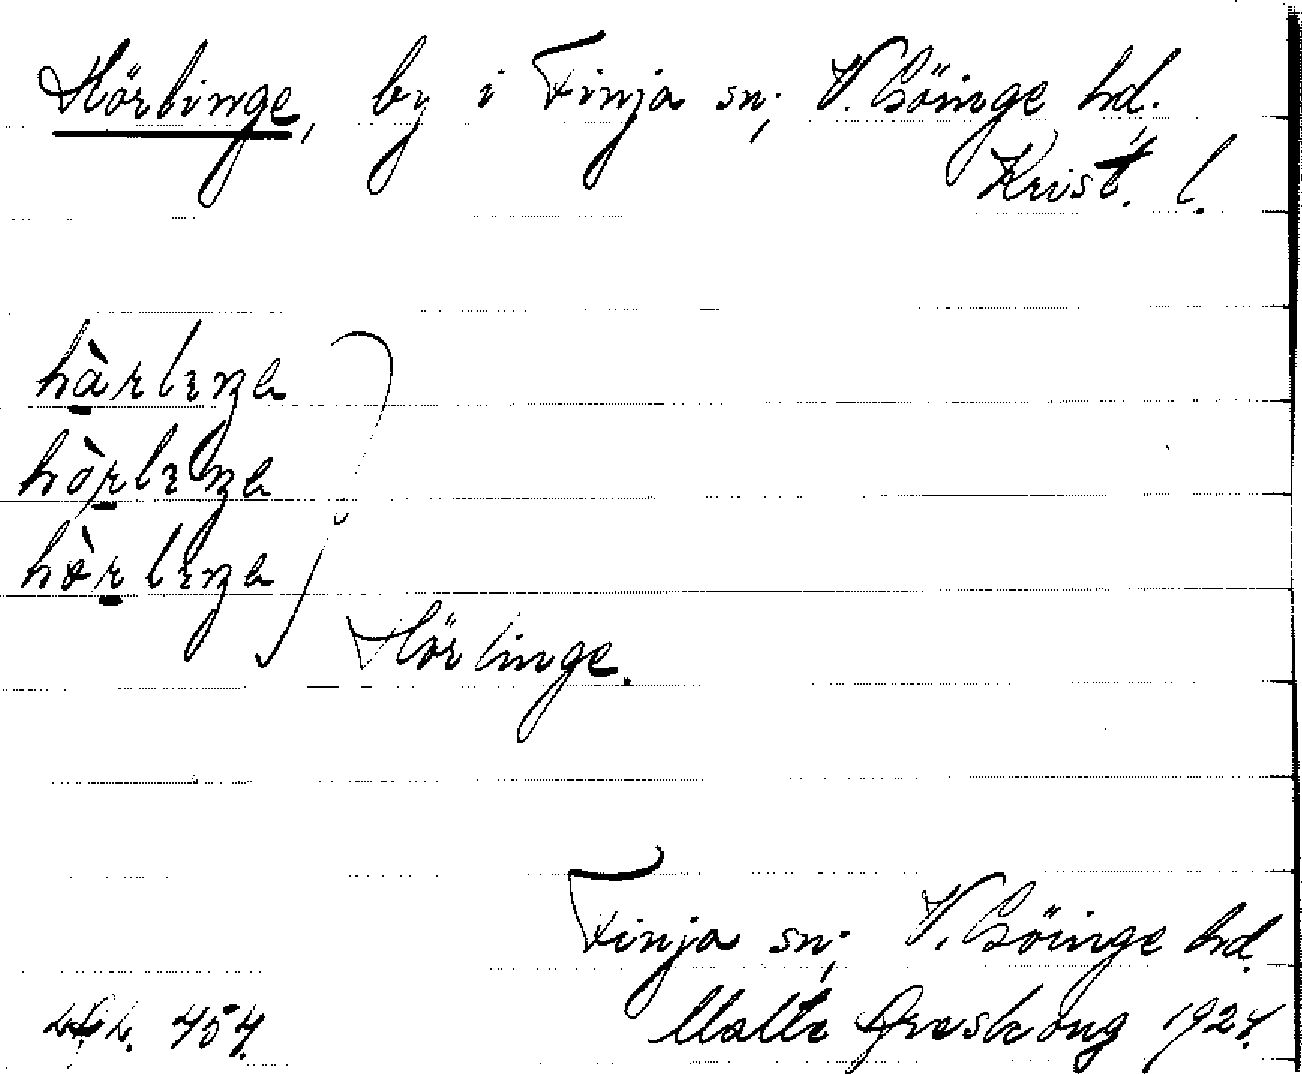 Hörlinge, by i Finja sn; V. Göinge hd.
Krist. l.
hàrlıŋa
hòrlıŋa
hòrlıŋa
Hörlinge.
Finja sn; V. Göinge hd.
Malte Areskoug 1924.
454.